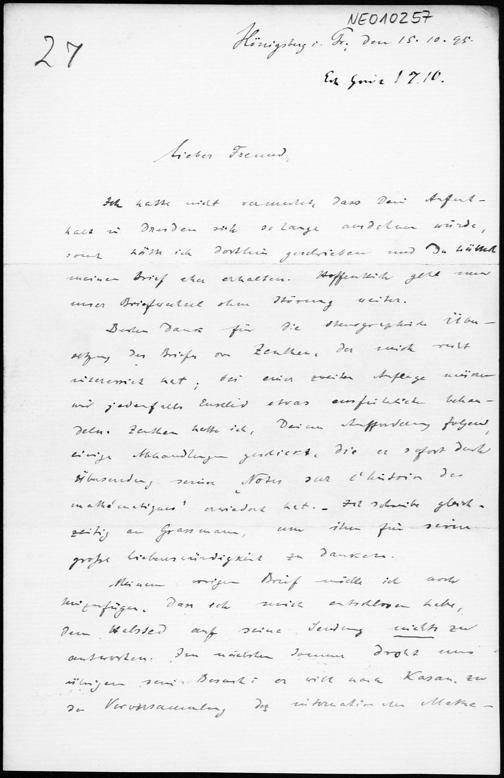 NE010257
27
Königsberg i. Pr., den 15.10.95.
17.10.
Lieber Freund,
Ich hatte nicht vermuthet, dass Dein Aufent-
halt in Dresden sich so lange ausdehnen würde,
sonst hätte ich dorthin geschrieben und Du hättest
meinen Brief eher erhalten. Hoffentlich geht nun
unser Briefwechsel ohne Störung weiter.
Besten Dank für die stenographische Über-
setzung des Briefs von Zeuthen, der mich recht
interessirt hat; bei einer zweiten Auflage müssen
wir jedenfalls Euclid etwas ausführlicher behan-
deln. Zeuthen hatte ich, Deiner Aufforderung folgend,
einige Abhandlungen geschickt, die er sofort durch
Übersendung seiner „Notes sur l'histoire des
mathématiques" erwiedert hat. – Ich schreibe gleich-
zeitig an Grassmann, um ihm für seine
große Liebenswürdigkeit zu danken.
Meinem vorigen Brief möchte ich noch
hinzufügen, dass ich mich entschlossen habe,
dem Halsted auf seine Sendung nichts zu
antworten. Den nächsten Sommer droht uns
übrigens sein Besuch: er will nach Kasan zu
der Vorversammlung des internationalen Mathe-